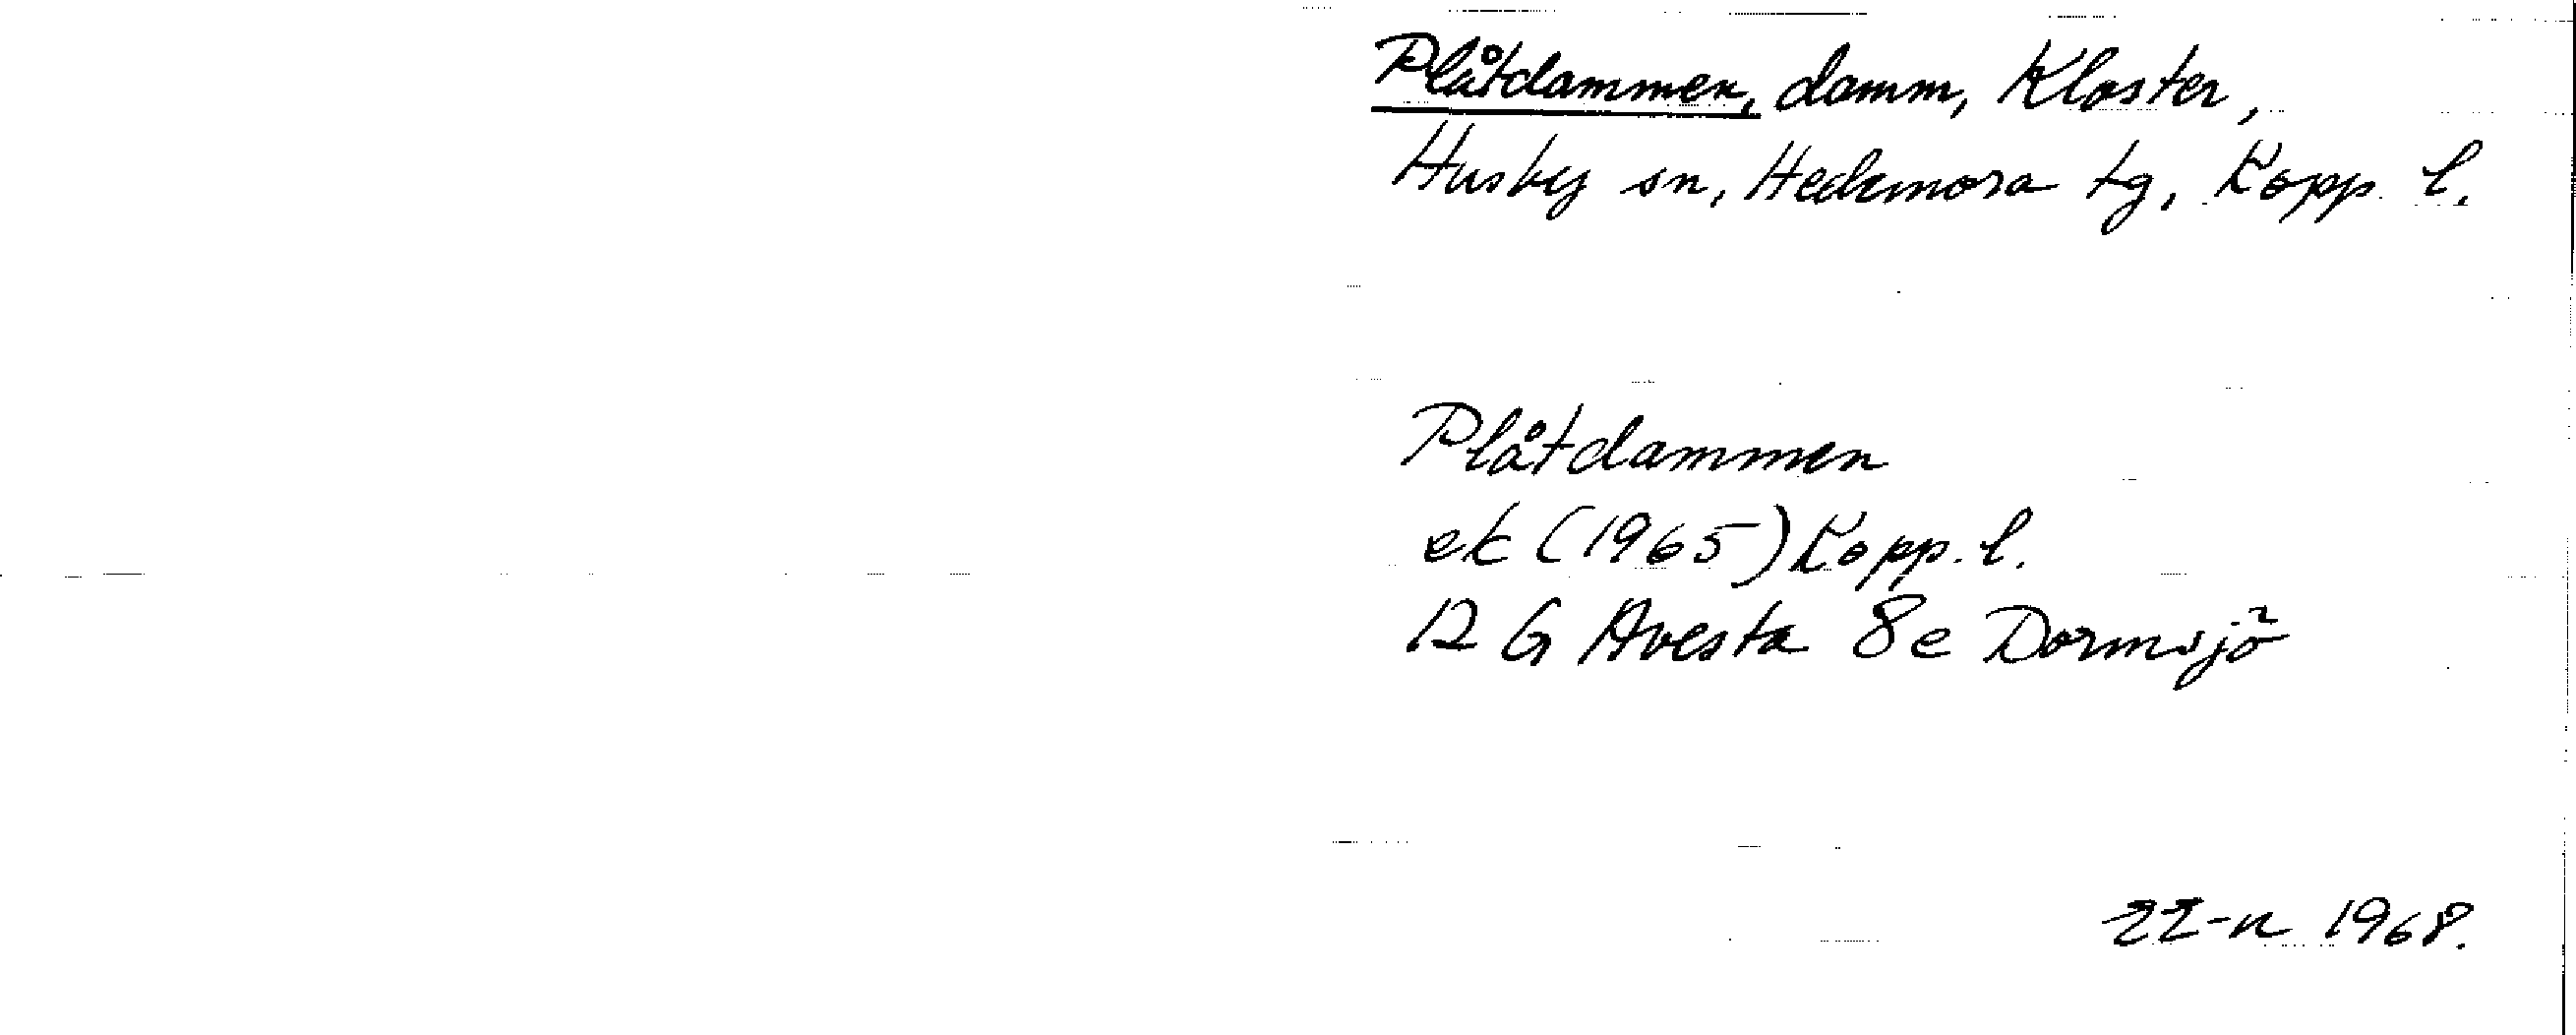 Plåtdammen, damm, Kloster,
Husby sn, Hedemora tg, Kopp. l.
Plåtdammen
ek (1965) Kopp. l.
12 G Avesta 8e Dormsjö
1968.